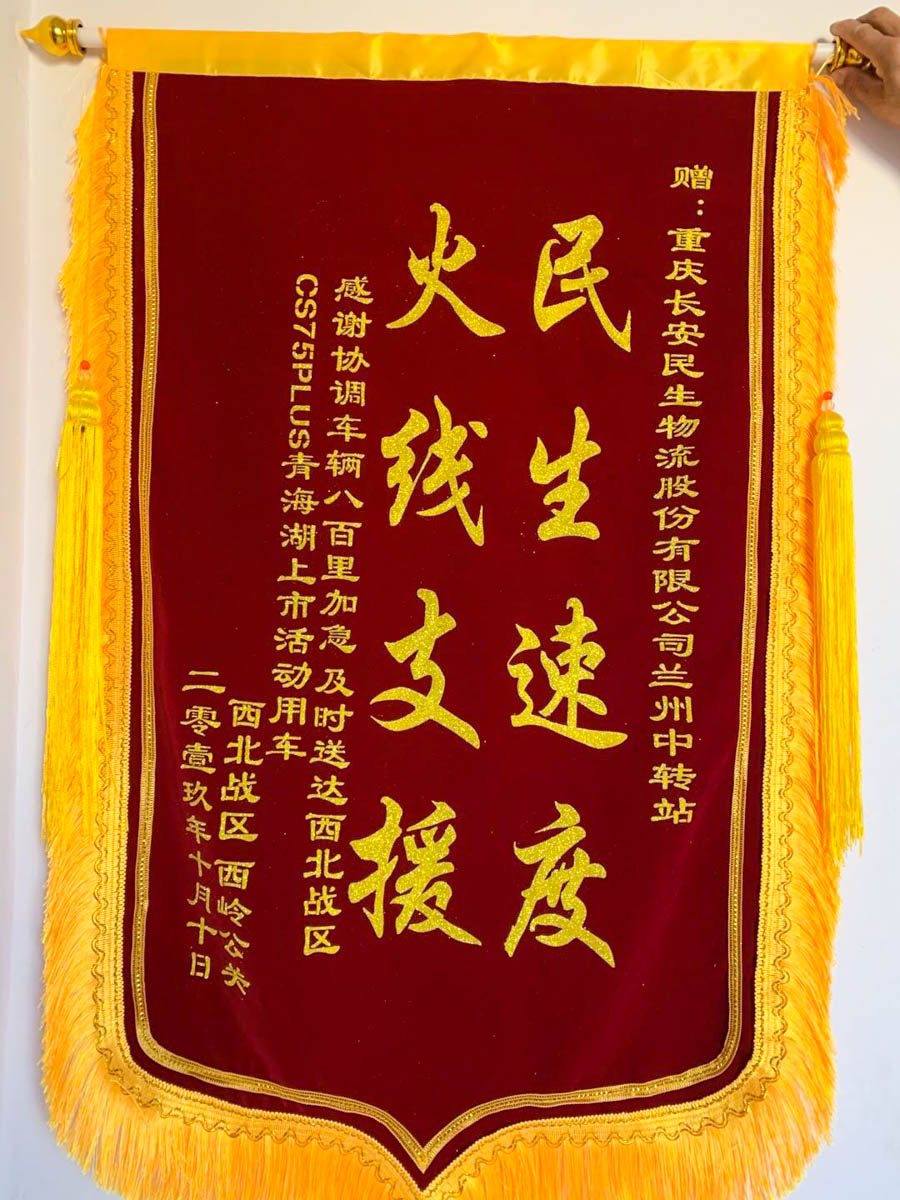 赠：重庆长安民生物流股份有限公司兰州中转站
民生速度
火线支援
感谢协调车辆八百里加急 及时送达西北战区
CS75PLUS青海湖上市活动用车
西北战区 西岭公关
二零壹玖年十月十日